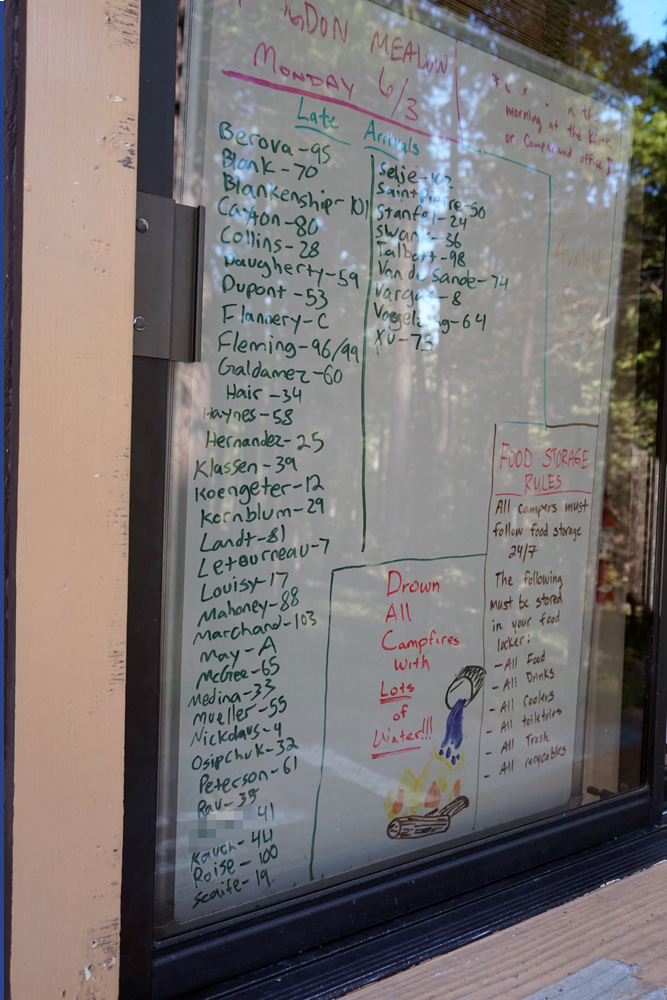 MEADOW
MONDAY 6/3
Late Arrivals
Berova-95
Blank-70
Blankenship-101
Caxton-80
Collins-28
Daugherty-59
Dupont-53
Flannery-C
Fleming-96/99
Galdamez-60
Hair-34
Haynes-58
Hernandez-25
Klassen-39
Koengeter-12
Kornblum-29
Landt-81
Letourneau-7
Louisy-17
Mahoney-88
Marchand-103
May-A
McGee-65
Medina-33
Mueller-55
Nickolaus-4
Osipchuk-32
Peterson-61
Rau-35
41
Rauch-44
Roise-100
Scaife-19
Selje-102
Saintpierre-50
Stanfel-24
Swank-36
Talbott-98
Van de Sande-74
Vargas-8
Vogelsang-64
Xu-75
in the
morning at the Kiosk
or Campground office
Available
Sites
FOOD STORAGE
RULES
All campers must
follow food storage
24/7
The following
must be stored
in your food
locker:
- All Food
- All Drinks
- All Coolers
- All toiletries
- All Trash
- All recycables
Drown
All
Campfires
with
Lots
of
Water!!!